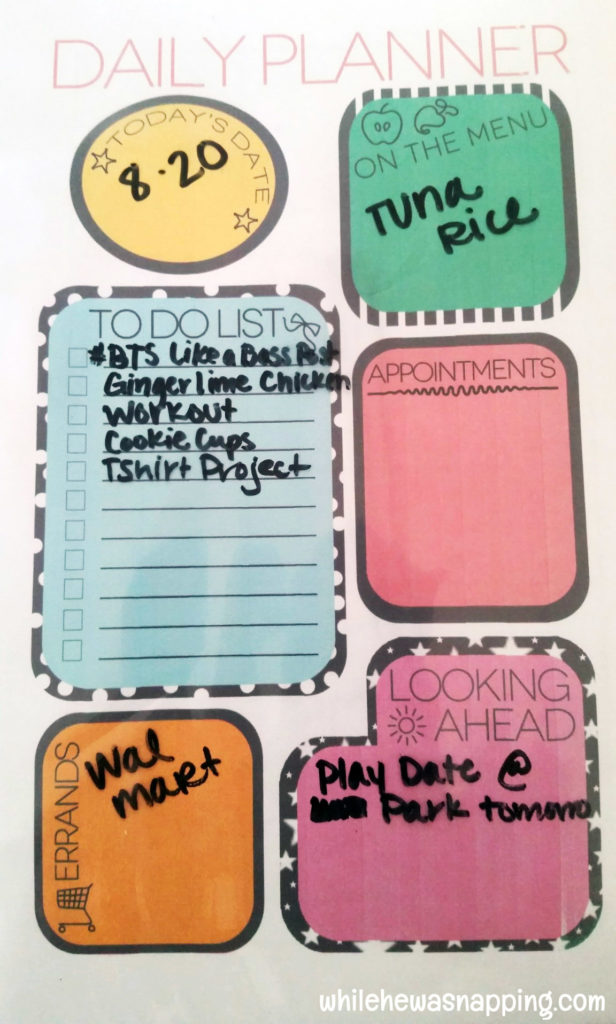 DAILY PLANNER
TODAY'S DATE
8.20
ON THE MENU
Tuna
Rice
TO DO LIST
#BTS Like a Boss Post
Ginger lime Chicken
Workout
Cookie Cups
TShirt Project
APPOINTMENTS
LOOKING
AHEAD
Play Date @
Park
ERRANDS
Wal
mart
whilehewasnapping.com